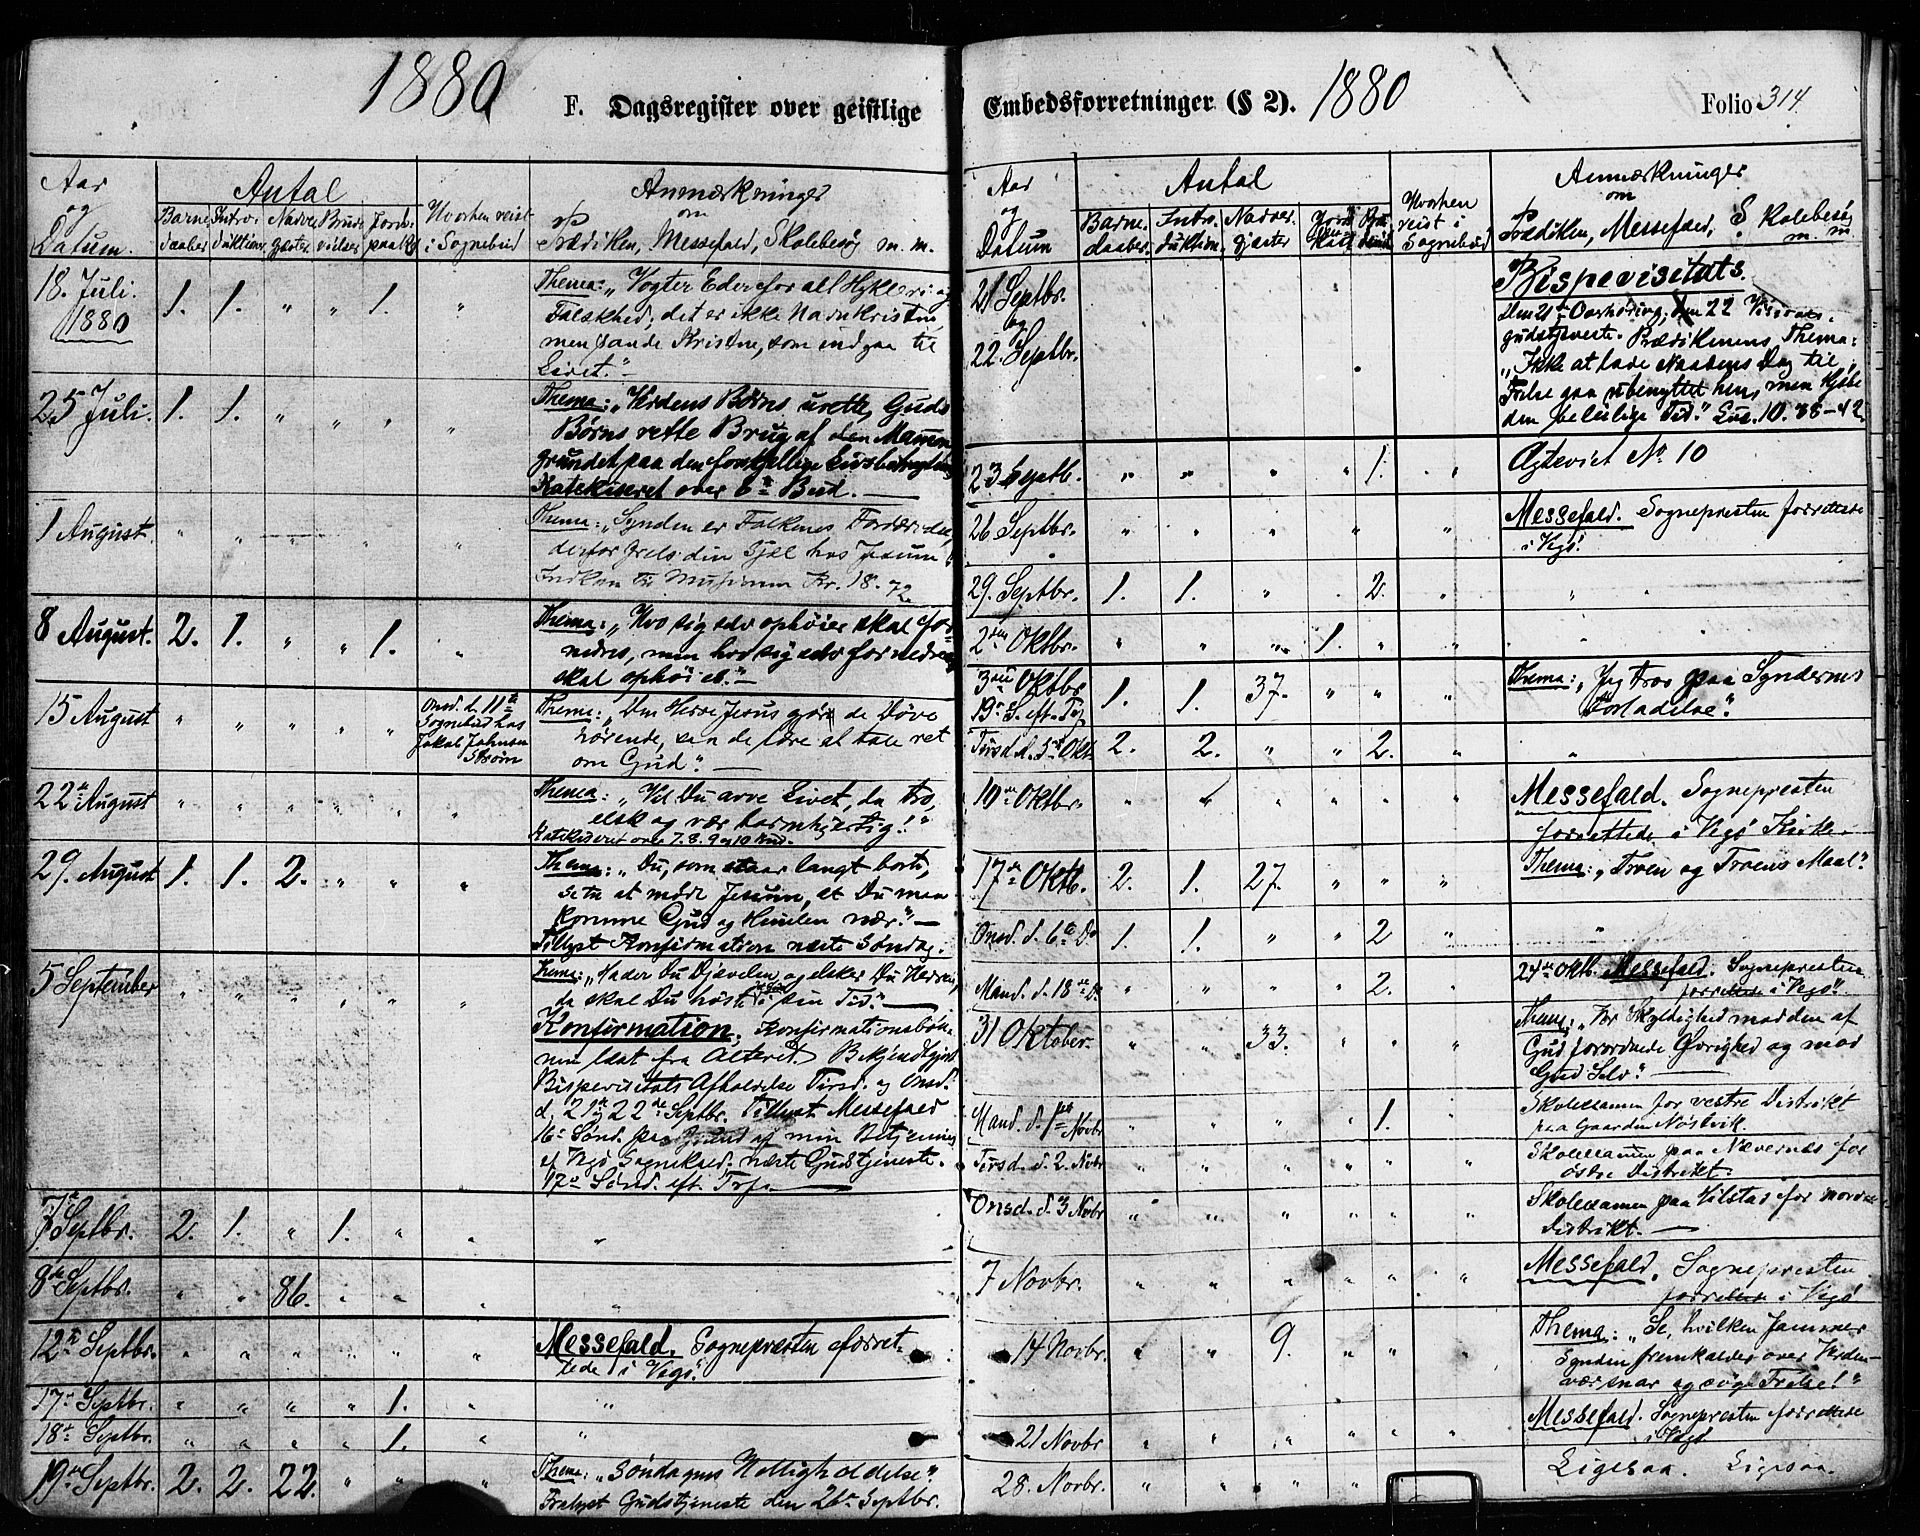 1880
F. Dagsregister over geistlige
Aar og Datum.
Antal
Barne daaber
Introduktioner
Nadvergjester
Brudevielser
Jordspaak.
Hvorhen reist i Sognebud
Anmærkninger om Prædiken, Messefald, Skolebesøg m. m.
18. Juli. 1880 1. 1. " " 1. "
Thema: "Vogter Eder for alt Hykleri og
Falskhed; det er ikke Navnkristne,
men sande Kristne, som indgaa til
Livet."
25 Juli. 1. 1. " " " "
Thema: "Verdens Børns urette, Guds
Børns rette Brug af den Mammon
grundet paa den forskjellige
Katekiseret over 6te Bud.
1 August. " " " " "
Thema: "Synden er Folkenes Fordærvelse,
derfor frels din Sjæl hos Jesum"
Indkom til Missionen Kr. 18.72
8 August. 2. 1. " " 1. "
Thema: "Hvo sig selv ophøier skal for-
nedres, men hvo sig selv fornedrer
skal ophøies."
15 August " " " " "
Onsd. d. 11te
Sognebud hos
Jakob Johnsen
Strøm
Thema: "Den Herre Jesus gjør de Døve
hørende, saa de lære at tale ret
om Gud."
22de August " " " " " "
Thema: "Vil Du arve Livet, da tro,
elsk og vær barmhjertig!"
Katekiseret over 7. 8. 9 og 10 Bud.
29. August 1. 1. 2. " " "
Thema: "Du, som staar langt borte,
se til at møde Jesum, at Du maa
komme Gud og Himlen nær."
Tillyst Konfirmation næste Søndag.
5 September " " " " " "
Thema: "Hader Du Djævelen, og elsker Du Herren,
da skal Du høste i sin Tid."
Konfirmation. Konfirmationsbøn-
nen læst fra Alteret. Bekjendtgjort
Bispevisitats Afholdelse Tirsd. og Onsd.
d. 21de og 22de Septbr. Tillyst Messefald
16de Sønd. paa Grund af min Betjening
af Vegø Sognekald, næste Gudstjeneste
17de Sønd. eft. Tref.
7de Septbr. 2. 1. " 1. " " "
8de Septbr. " " 86. " " " "
12te Septbr. " " " " " "
Messefald. Sognepresten forret-
tede i Vegø.
17de Septbr. " " " " 1. "
18de Septbr. " " " " 1. " "
19de Septbr. 2. 2. 22. " " "
Thema: "Søndagens Helligholdelse".
Tillyst Gudstjeneste den 26de Septbr.
Embedsforretninger (§ 2). 1880
Folio 314
Aar og Datum
Antal
Barne daaber.
Introduktion.
Nadvergjester
Hvorhen reist i Sognebud
Anmærkninger om Prædiken, Messefald, Skolebesøg m. m.
21 Septbr. og 22. Septbr.
Bispevisitats.
Den 21de Overhøring, den 22 Visitats-
gudstjeneste. Prædikenens Thema:
"Ikke at lade Naadens Dag til
Frelse gaa ubenyttet hen, men kjøbe
den beleilige Tid." Luc. 10. 38-42
23 Septb. " " " " 1. "
Agteviet No 10
26 Septbr. " " " " "
Messefald. Sognepresten forrettede
i Vegø.
29. Septbr. 1. 1. " . 2. " "
2den Oktbr. " " " 1. " " "
3die Oktbr 19de S. eft. Tref 1. 1. 37. " " "
Thema: "Jeg tror paa Syndernes
Forladelse".
Tirsd. d. 5te Okt. 2. 2. " " 2. " "
10de Oktbr. " " " " " "
Messefald. Sognepresten
forrettede i Vegø Kirke.
17de Oktb. 2. 1. 27. " " "
Thema: "Troen og Troens Maal".
Onsd. d. 6te Do 1. 1. " " 2 " "
Mand. d. 18de Do " " " " 2. "
24de Oktb. Messefald. Sognepresten
forrettede i Vegø.
31 Oktober. " " 33. " " "
Thema: "Vor Skyldighed mod den af
Gud forordnede Øvrighed og mod
Gud Selv."
Mand. d. 1ste Novbr " " " " 1. "
Skolexamen for vestre Distrikt
paa Gaarden Nøstvik.
Tirsd. d. 2. Novbr " " " " " "
Skolexamen paa Nævernes for
østre Distrikt.
Onsd. d. 3 Novbr " " " " " "
Skolexamen paa Vilstad for nordre
Distrikt.
7 Novbr. " " " " " "
Messefald. Sognepresten
forrettede i Vegø
14 Novbr. " " 9. " " "
Thema: "Se, hvilken Jammer
Synden fremkalder over Verden-
vær snar og søg Frelse!"
21 Novbr " " " " " "
Messefald. Sognepresten forrettede
i Vegø
28. Novbr. " " " " " "
Ligesaa. Ligesaa.